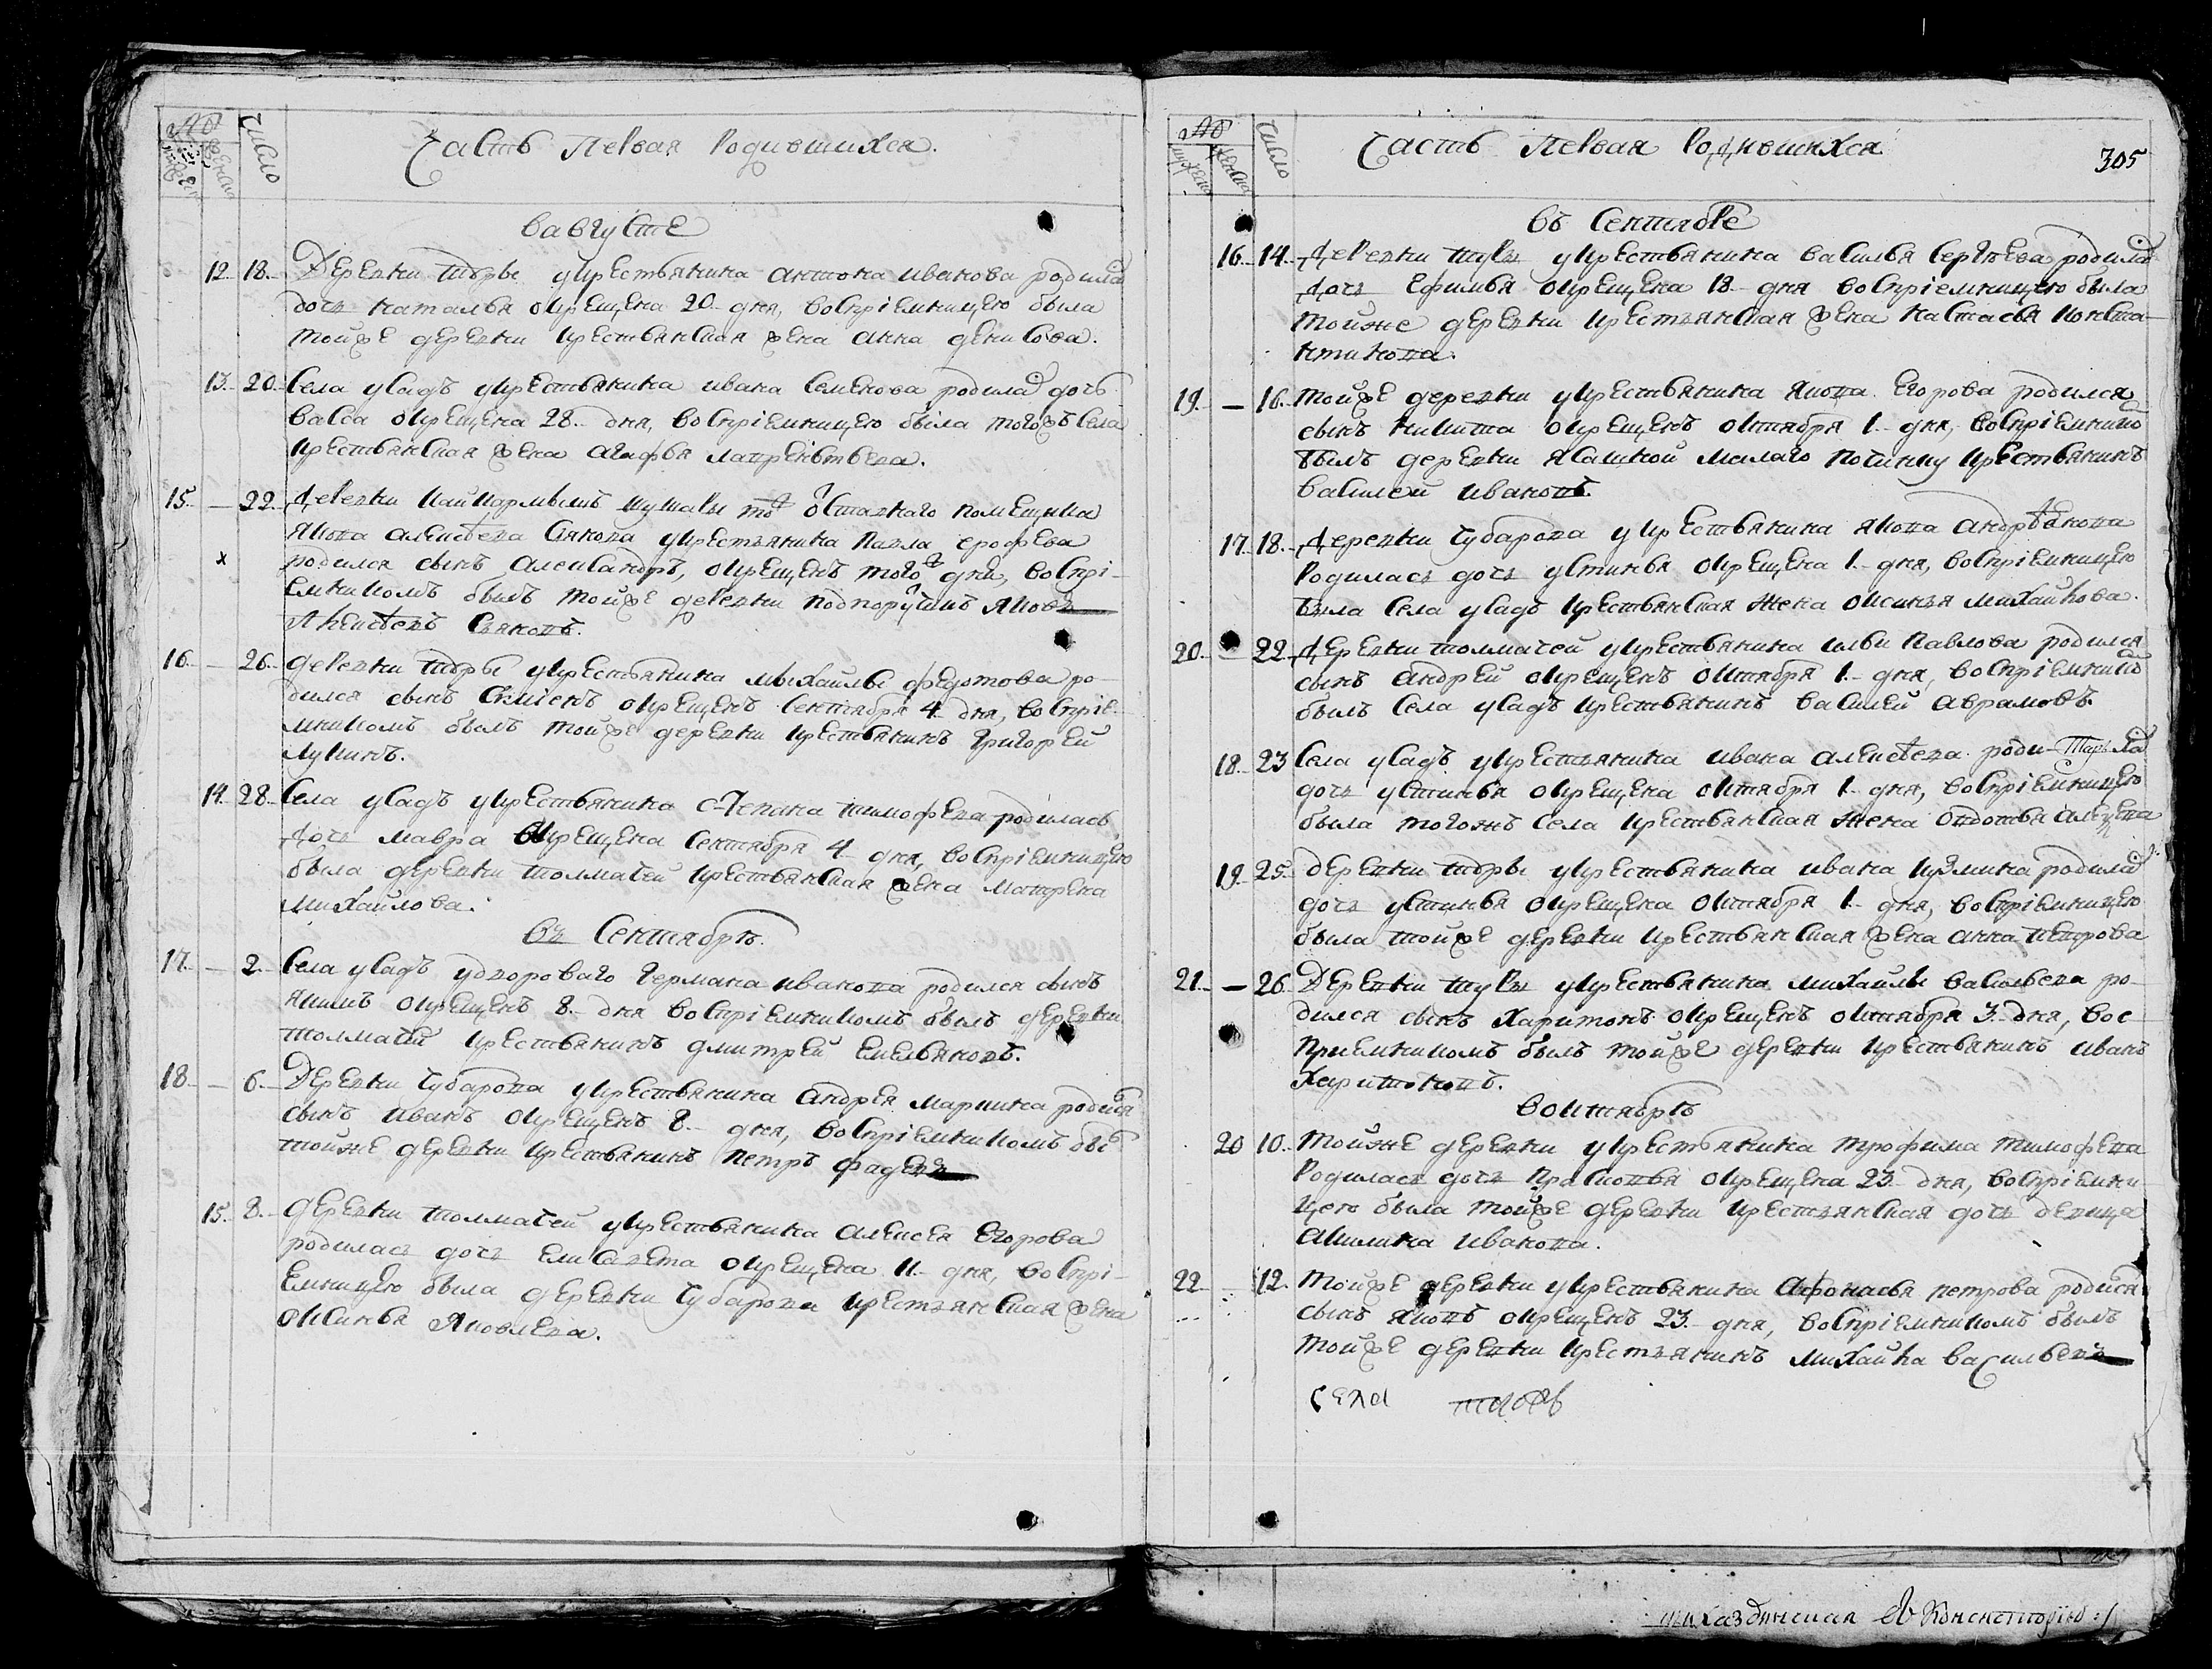 Часть первая родившихся.
Число
в августе
12. 18. Деревни Тюрбы у крестьянина Антона Иванова родилас
дочь Наталья окрещена 20 дня, восприемницею была
тойже деревни крестьянская жена Анна Денисова.
13. 20. Села Усадъ у крестьянина Ивана Семенова родилас дочь
Васса окрещена 28 дня, восприемницею была тогожъ села
крестьянская жена Агафья Лаврентьева.
15. — 22. Деревни отставнаго помещика
Якова Алексѣева у крестьянина Павла Ерофеева
родился сынъ Александръ, окрещенъ того дни, воспрі-
емникомъ былъ тойже деревни подпорутчикъ Яковъ
Алексѣевъ
16. — 26. деревни Тюрбы у крестьянина Михайлы Федотова ро-
дился сынъ окрещенъ сентября 4 дня, воспріе-
мникомъ былъ тойже деревни крестьянинъ Григорей
Лукинъ.
14. 28. Села Усадъ у крестьянина Степана Тимофеева родилась
дочь Мавра окрещена сентября 4 дня, воспріемницею
была деревни Толмачей крестьянская жена Матрена
Михайлова.
въ Сентябрѣ.
17. — 2. Села Усадъ у дворового Германа Иванова родился сынъ
Якимъ окрещенъ 8 дня воспріемникомъ былъ деревни
Толмачей крестьянинъ Дмитрей Емельяновъ.
18. — 6. Деревни Чубарова у крестьянина Андрея Маркина родился
сынъ Иванъ окрещенъ 8 дня, воспріемникомъ былъ
тойже деревни крестьянинъ Петръ Фадеевъ
15. 8. деревни Толмачей у крестьянина Алексея Егорова
родилась дочь Елисавета окрещена 11 дня, воспрі-
емницею была деревни Чубарова крестьянская жена
Оксинья Яковлева.
Часть первая родившихся
305
Число
въ Сентябре
16. 14. Деревни у крестьянина Василья Сергѣева родилас
дочь Ефимья окрещена 18 дня воспріемницею была
тойже деревни крестьянская жена Настасья Конста-
нтинова.
19. — 16. тойже деревни у крестьянина Якова Егорова родился
сынъ Никита окрещенъ октября 1 дня, воспріемникомъ
былъ деревни Ясашной Малаго Починку крестьянинъ
Василей Ивановъ.
17. 18. Деревни Чубарова у крестьянина Якова Андреянова
родилась дочь Устинья окрещена 1 дня, воспріемницею
была села Усадъ крестьянская жена Оксинья Михайлова.
20. — 22. Деревни Толмачей у крестьянина Ильи Павлова родился
сынъ Андрей окрещенъ октября 1 дня, воспріемникомъ
былъ села Усадъ крестьянинъ Василей Аврамовъ.
18. 23 Села Усадъ у крестьянина Ивана Алексѣева роди-
дочь Устинья окрещена октября 1 дня, воспріемницею
была тогожъ села крестьянская жена Овдотья
19. 25. деревни Тюрбы у крестьянина Ивана Кузмина родилас
дочь Устинья окрещена октября 1 дня, воспріемницею
была тойже деревни крестьянская жена Анна Петрова
21. — 26. Деревни у крестьянина Михайлы Васильева ро-
дился сынъ Харитонъ окрещенъ октября 3 дня, вос
приемникомъ былъ тойже деревни крестьянинъ Иванъ
Харитоновъ.
в октябрѣ
20 10. тойже деревни у крестьянина Трофима Тимофеева
родилась дочь Прасковья окрещена 23 дня, воспріемни
цею была тойже деревни крестьянская дочь девица
Акилина Иванова.
22 — 12. тойже деревни у крестьянина Афонасья Петрова родился
сынъ Яковъ окрещенъ 23 дня, воспріемникомъ былъ
тойже деревни крестьянинъ Михайла Васильевъ
села